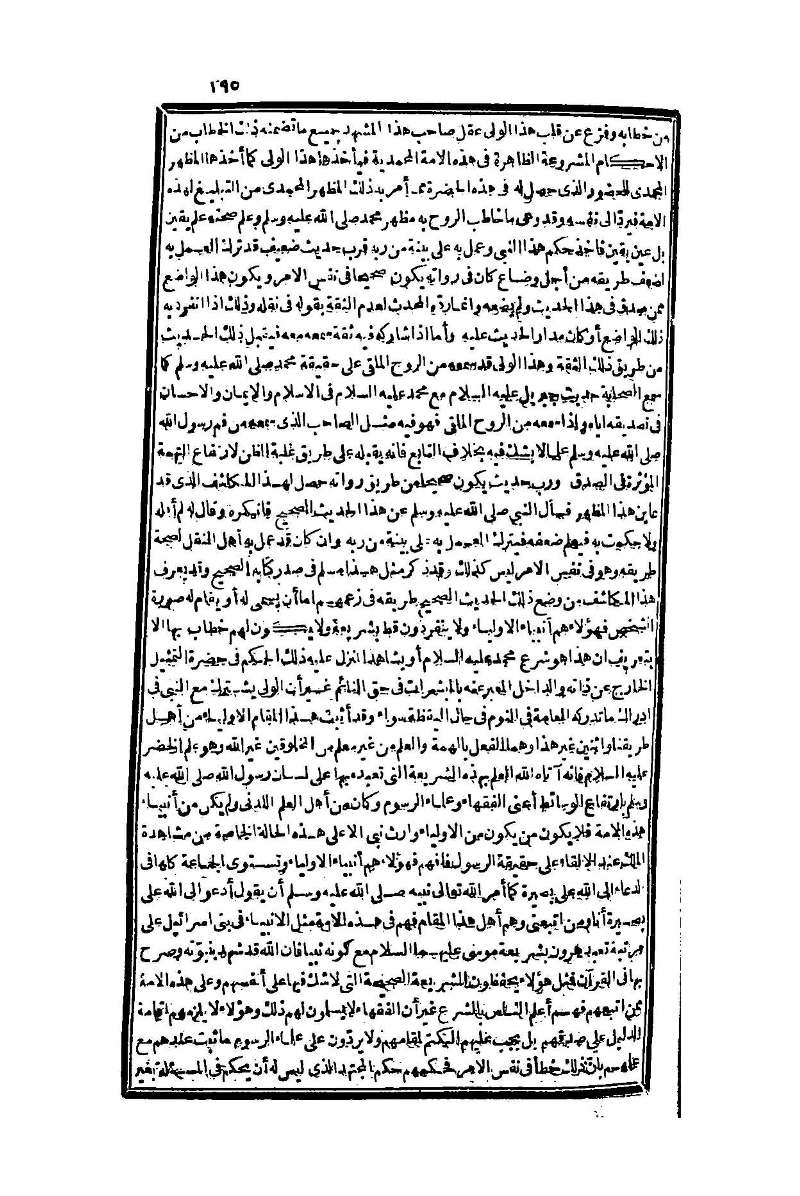 ١٩٥
من خطابه وفزع عن قلب هذا الولى عقل صاحب هذا المشهد جميع ما تضمنه ذلك الخطاب من
الاحكام المشروعة الظاهرة فى هذه الامة المحمدية فيأخذها هذا الولى كما أخذها المظهر
المحمدى للحضور الذى حصل له فى هذه الحضرة مما أمر به ذلك المظهر المحمدى من التبليغ لهذه
الامة فيرد الى نفسه وقد وعى ما خاطب الروح به مظهر محمد صلى الله عليه وسلم وعلم صحته علم يقين
بل عين يقين فأخذ حكم هذا النبى وعمل به على بينة من ربه فرب حديث ضعيف قد ترك العمل به
لضعف طريقه من أجل وضاع كان فى رواته يكون صحيحا فى نفس الامر ويكون هذا الواضع
ممن صدق فى هذا الحديث ولم يضعه وانما رده المحدث لعدم الثقة بقوله فى نقله وذلك اذا انفرد به
ذلك الواضع أو كان مدار الحديث عليه وأما اذا شاركه فيه ثقة سمعه معه فيقبل ذلك الحديث
من طريق ذلك الثقة وهذا الولى قد سمعه من الروح الملقى على حقيقة محمد صلى الله عليه وسلم كما
سمع الصحابة حديث جبريل عليه السلام مع محمد عليه السلام فى الاسلام والايمان والاحسان
فى تصديقه اياه واذا سمعه من الروح الملقى فهو فيه مثل الصاحب الذى سمعه من فم رسول الله
صلى الله عليه وسلم علما لا يشك فيه بخلاف التابع فانه يقبله على طريق غلبة الظن لارتفاع التهمة
المؤثرة فى الصدق ورب حديث يكون صحيحا من طريق رواته حصل لهذا المكاشف الذى قد
عاين هذا المظهر فسأل النبى صلى الله عليه وسلم عن هذا الحديث الصحيح فانكره وقال له لم أقله
ولا حكمت به فيعلم ضعفه فيترك العمل به على بينة من ربه وان كان قد عمل به أهل النقل لصحة
طريقه وهو فى نفس الامر ليس كذلك وقد ذكر مثل هذا مسلم فى صدر كتابه الصحيح وقد يعرف
هذا المكاشف من وضع ذلك الحديث الصحيح طريقه فى زعمهم اما أن يسمى له أو يقام له صورة
الشخص فهؤلاء هم أنبياء الاولياء ولا ينفردون قط بشريعة ولا يكون لهم خطاب بها الا
بتعريف ان هذا هو شرع محمد عليه السلام أو يشاهد المنزل عليه ذلك الحكم فى حضرة التمثيل
الخارج عن ذاته والداخل المعبر عنه بالمبشرات فى حق النائم غير أن الولى يشترك مع النبى فى
ادراك ما تدركه العامة فى النوم فى حال اليقظة سواء وقد أثبت هذا المقام الاولياء من أهل
طريقنا واثنين غير هذا وهما الفعل بالهمة والعلم من غير معلم من المخلوقين غير الله وهو علم الخضر
عليه السلام فانه آتاه الله العلم بهذه الشريعة التى تعبده بها على لسان رسول الله صلى الله عليه
وسلم بارتفاع الوسائط أعنى الفقهاء وعلماء الرسوم وكان من أهل العلم اللدنى ولم يكن من أنبياء
هذه الامة فلا يكون من يكون من الاولياء وارث نبى الا على هذه الحالة الخاصة من مشاهدة
الملك عند الالقاء على حقيقة الرسول فافهم فهؤلاء هم أنبياء الاولياء وتستوى الجماعة كلها فى
الدعاء الى الله على بصيرة كما أمر الله تعالى نبيه صلى الله عليه وسلم أن يقول أدعو الى الله على
بصيرة أنا ومن اتبعنى وهم أهل هذا المقام فهم فى هذه الامة مثل الانبياء فى بنى اسرائيل على
مرتبة تعبد هرون بشريعة موسى عليهما السلام مع كونه نبيا فان الله قد شهد بنبوته وصرح
بها فى القرآن فمثل هؤلاء يحفظون الشريعة الصحيحة التى لا شك فيها على أنفسهم وعلى هذه الامة
ممن اتبعهم فهم أعلم الناس بالشرع غير أن الفقهاء لا يسلمون لهم ذلك وهؤلاء لا يلزمهم اقامة
الدليل على صدقهم بل يجب عليهم الكتم لمقامهم ولا يردون على علماء الرسوم ما ثبت عندهم مع
علمهم بان ذلك خطأ فى نفس الامر فحكمهم حكم المجتهد الذى ليس له أن يحكم فى المسئلة بغير